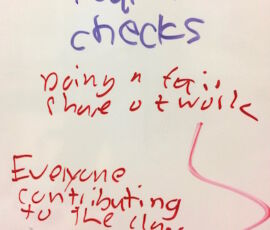 checks
Doing a fair
share of work
Everyone
contributing
to the